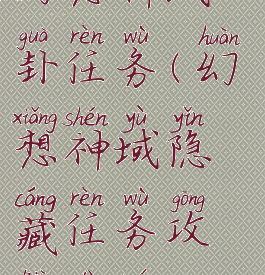 guà rèn wù huàn
卦任务(幻
xiǎng shén yù yǐn
想神域隐
cáng rèn wù gōng
藏任务攻